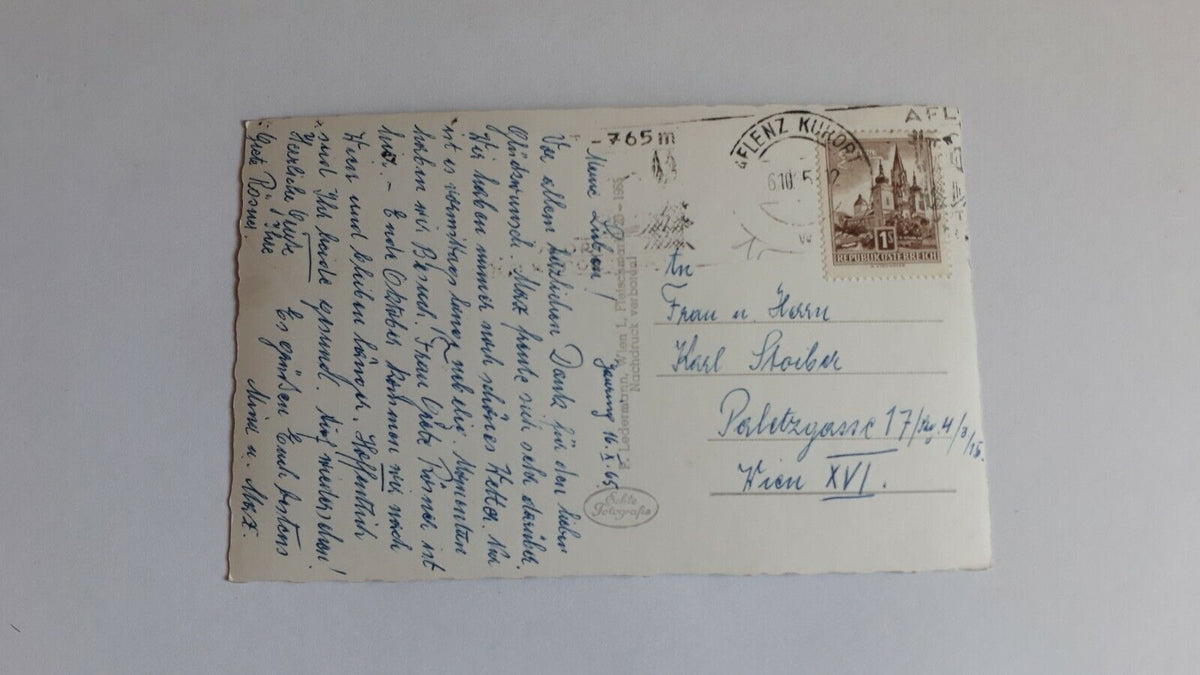 - 765 m
AFLENZ KURORT
6.10. 5 12
AFL
1s
REPUBLIK ÖSTERREICH
An
Frau u. Herrn
Karl Stoiber
Paletzgasse 17/Stg. 4/3/15.
Wien XVI.
P. Ledermann, Wien I, Fleischmarkt 20 - 1965
Nachdruck verboten!
Echte
Fotografie
Jauring 16. X. 65.
Meine Lieben!
Vor allem herzlichen Dank für den lieben
Glückwunsch. Max freute sich sehr darüber.
Wir haben immer noch schönes Wetter. Nur
ist es vormittags lange neblig. Momentan
haben wir Besuch. Frau Grete Rösner ist
hier. - Ende Oktober kommen wir nach
Wien und bleiben länger. Hoffentlich
seid Ihr beide gesund. Auf wiedersehen!
Es grüßen Euch bestens
Mina u. Max.
Herzliche Grüße
Ihre
Grete Rösner.